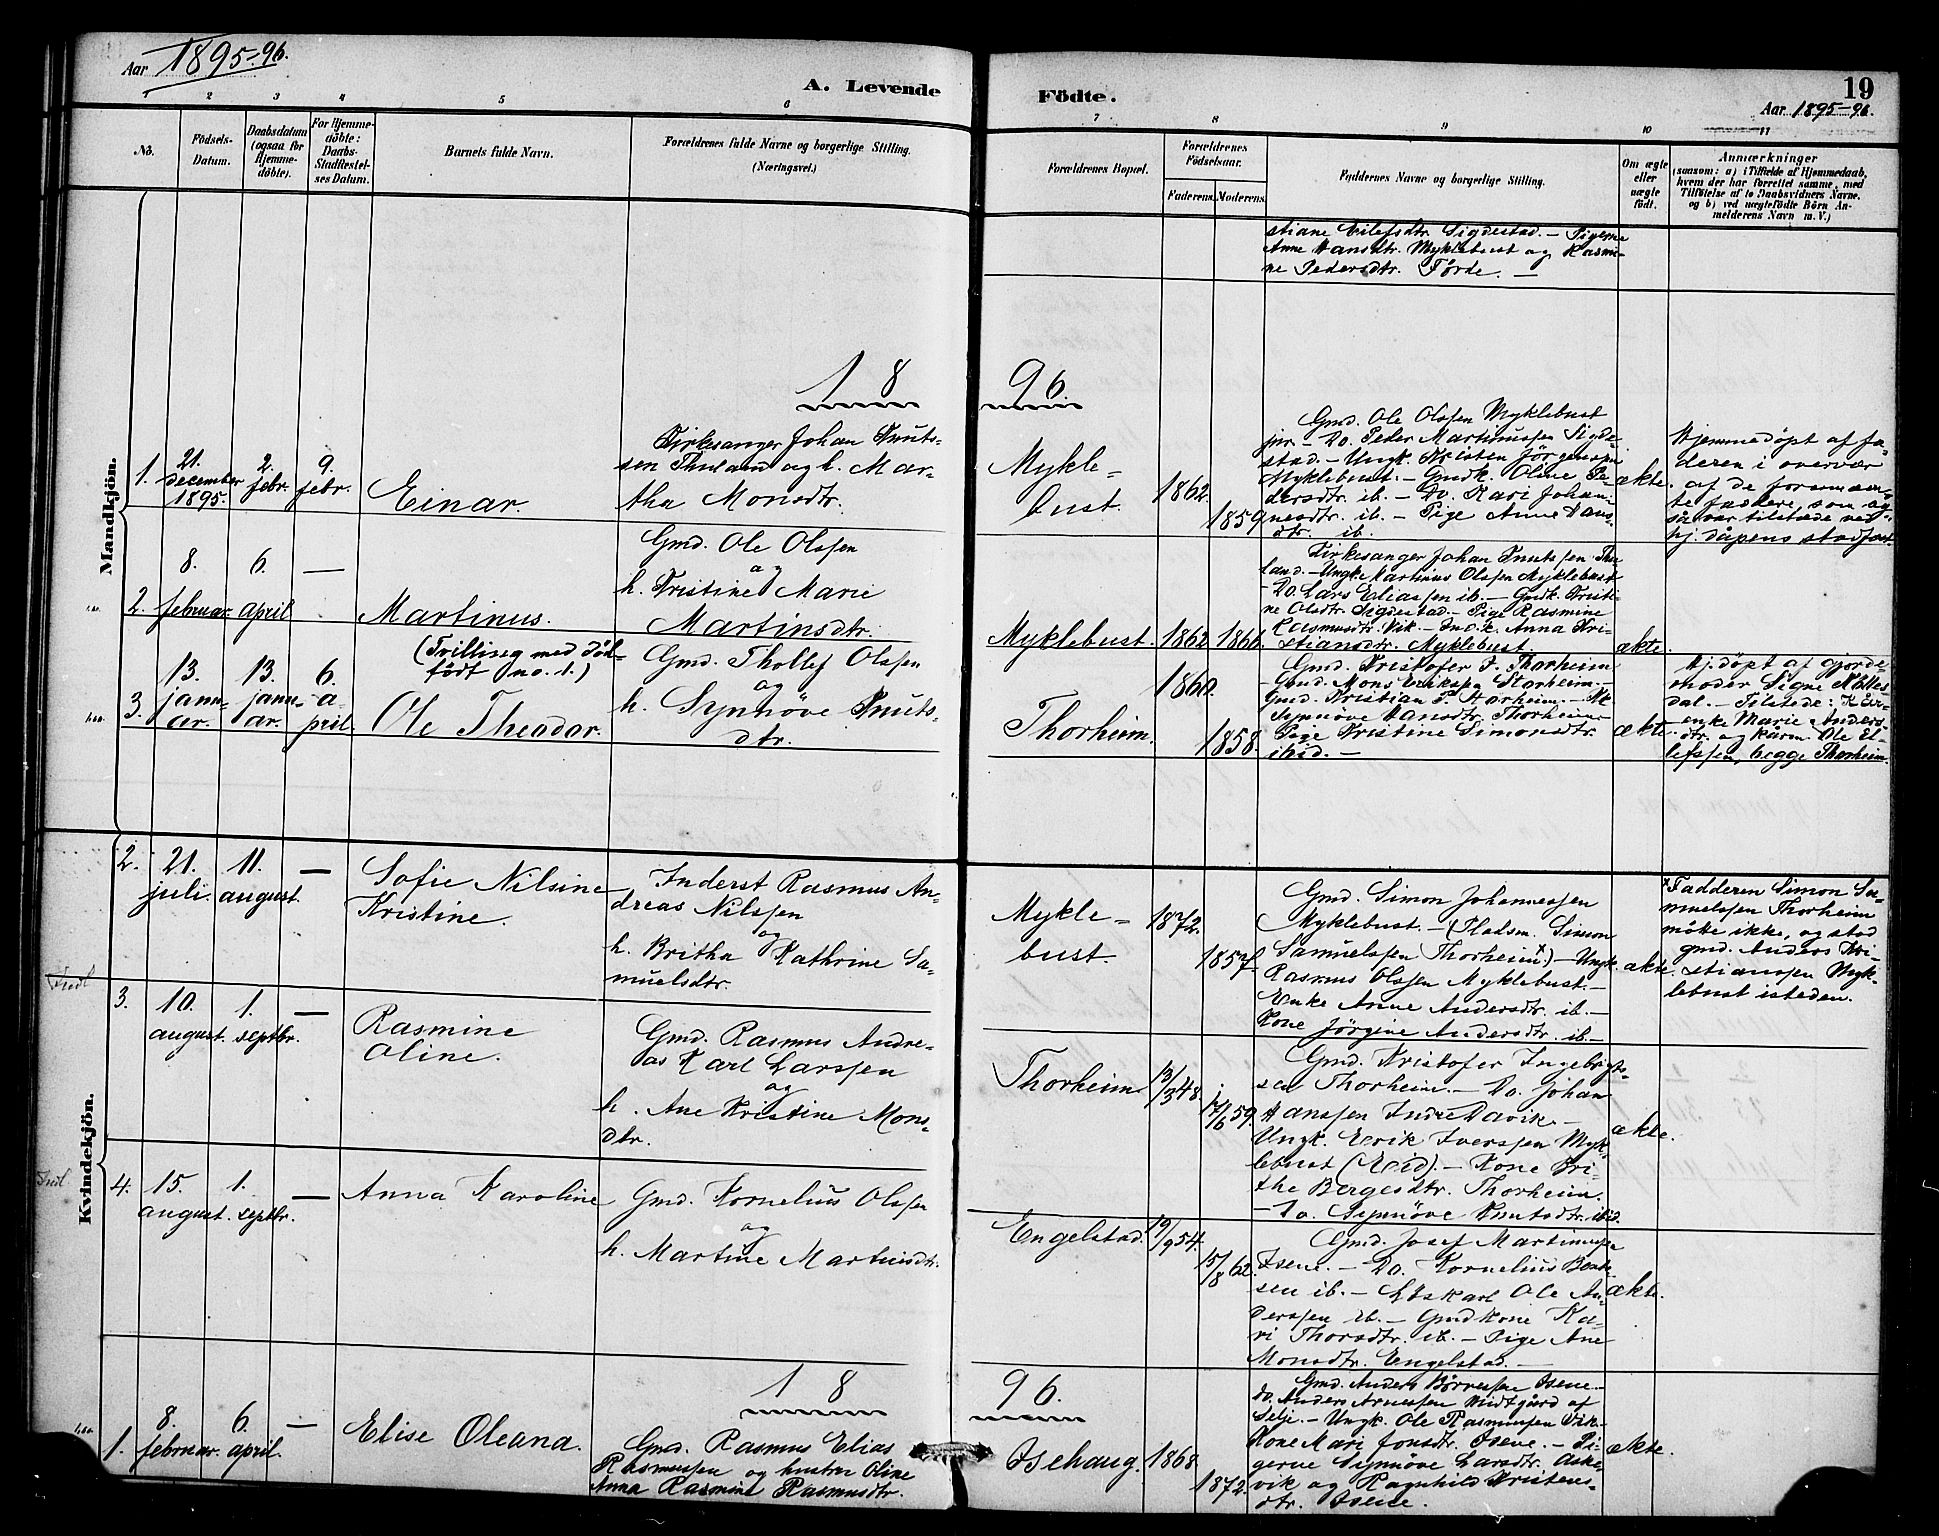 Aar 1895-96.
A. Levende Födte.
19
Aar 1895-96.
1 2 3 4 5 6 7 8 9 10 11
No.
Födsels-
Datum.
Daabsdatum
(ogsaa for
Hjemme-
döbte).
For Hjemme-
döbte:
Daabs-
Stadfæstel-
ses Datum.
Barnets fulde Navn.
Forældrenes fulde Navne og borgerlige Stilling.
(Næringsvei.)
Forældrenes Bopæl.
Forældrenes
Födselsaar.
Faderens. Moderens.
Faddernes Navne og borgerlige Stilling.
Om ægte
eller
uægte
födt.
Anmærkninger
(saasom: a) i Tilfælde af Hjemmedaab,
hvem der har forrettet samme, med
Tilföielse af to Daabsvidners Navne,
og b) ved uægtefödte Börn An-
melderens Navn m. V.)
stiane Eilefsdtr. Sigdestad. – Pigerne
Anne Hansdtr. Myklebust og Rasmi-
ne Pedersdtr. Förde. –
18 96.
Mandkjön.
1.
21.
december
1895.
2.
febr.
9.
febr.
Einar.
Kirkesanger Johan Knuts-
sen Thuland og h. Mar-
tha Monsdtr.
Mykle-
bust.
1862.
1859.
Gmd. Ole Olssen Myklebust
jnr. – Do. Peder Martinussen Sigde-
stad. – Ungk. Kristen Jörgenssen
Myklebust. – Gmdk. Oline Pe-
dersdtr. ib. – Do. Kari Johan-
nesdtr. ib. – Pige Anne Hans-
dtr. ib.
ækte.
Hjemmedöpt af fa-
deren i overvær
af de forannævn-
te faddere som og-
så var tilstede ved
hj. dåpens stadfæst.
2.
8.
februar.
6.
april
–
Martinus.
Gmd. Ole Olssen
og
h. Kristine Marie
Martinsdtr.
Myklebust.
1862
1866.
Kirkesanger Johan Knutssen Thu-
land. – Ungk. Martinus Olssen Myklebust
– Do. Lars Eliassen ib. – Gmdk. Kristi-
ne Olsdtr. Sigdestad. – Pige Rasmine
Rasmusdtr. Vik. – Anna Kri-
stiansdtr. Myklebust.
ækte.
3.
13.
janu-
ar.
13.
janu-
ar.
6.
a-
pril.
(Tvilling med död-
födt no. 1.)
Ole Theodor.
Gmd. Thollef Olssen
og
h. Synnöve Knuts-
dtr.
Thorheim.
1860.
1858.
Gmd. Kristofer I. Thorheim
– Gmd. Mons Erikssen Starheim. –
Gmd. Kristian P. Starheim. –
Synnöve Hansdtr. Thorheim
Pige Kristine Simonsdtr.
ibid. –
ækte.
Hj. döpt af gjorde-
moder Signe Nötles-
dal. – Tilstede:
enke Marie Anders-
dtr. og kårm. Ole El-
lefssen, begge Thorheim.
Kvindekjön.
2.
21.
juli.
11.
august.
–
Sofie Nilsine
Kristine.
Inderst Rasmus An-
dreas Nilssen
og
h. Britha Kathrine Sa-
muelsdtr.
Mykle-
bust.
1872.
1857.
Gmd. Simon Johannessen
Myklebust. – (Pladsm. Simon
Samuelssen Thorheim x) – Ungk.
Rasmus Olssen Myklebust. –
Enke Anne Andersdtr. ib. –
Kone Jörgine Andersdtr. ib. –
ækte.
x Fadderen Simon Sa-
muelssen Thorheim
mötte ikke, og stod
gmd. Anders Kri-
stianssen Myk-
lebust isteden.
3.
10.
august.
1.
septbr.
–
Rasmine
Oline.
Gmd. Rasmus Andre-
as Karl Larssen
og
h. Ane Kristine Mons-
dtr.
Thorheim.
13/3 48.
17/6 59.
Gmd. Kristofer Ingebrigts-
sen Thorheim. – Do. Johan
Hanssen Indre Davik. –
Ungk. Erik Iverssen Myk-
lebust (Eid). – Kone Bri-
the Bergesdtr. Thorheim.
– Do. Synnöve Knutsdtr. ibid.
ækte.
4.
15.
august.
1.
septbr.
–
Anna Karoline
Gmd. Kornelius Olssen
og
h. Martine Martinsdtr.
Engelstad.
19/9 54.
15/8 62.
Gmd. Josef Martinussen
Isene. – Do. Kornelius Bent-
sen ib. – Löskarl Ole An-
derssen ib. – Gmdkone Ka-
ri Thorsdtr. ib. – Pige Ane
Monsdtr. Engelstad. –
ækte.
18 96.
1.
8.
februar.
6.
april.
–
Elise Oleana.
Gmd. Rasmus Elias
Rasmussen og hustru Oline
Anna Rasmine Rasmusdtr.
Isehaug.
1868.
1872.
Gmd. Anders Börressen Isene. –
do. Anders Arnessen Midtgård af
Selje. – Ungk. Ole Rasmussen Vik. –
Kone Mari Jonsdtr. Isene. – Pi-
gerne Synnöve Larsdtr. Aske-
vik og Ragnhild Kristens-
dtr. Isene.
ækte.